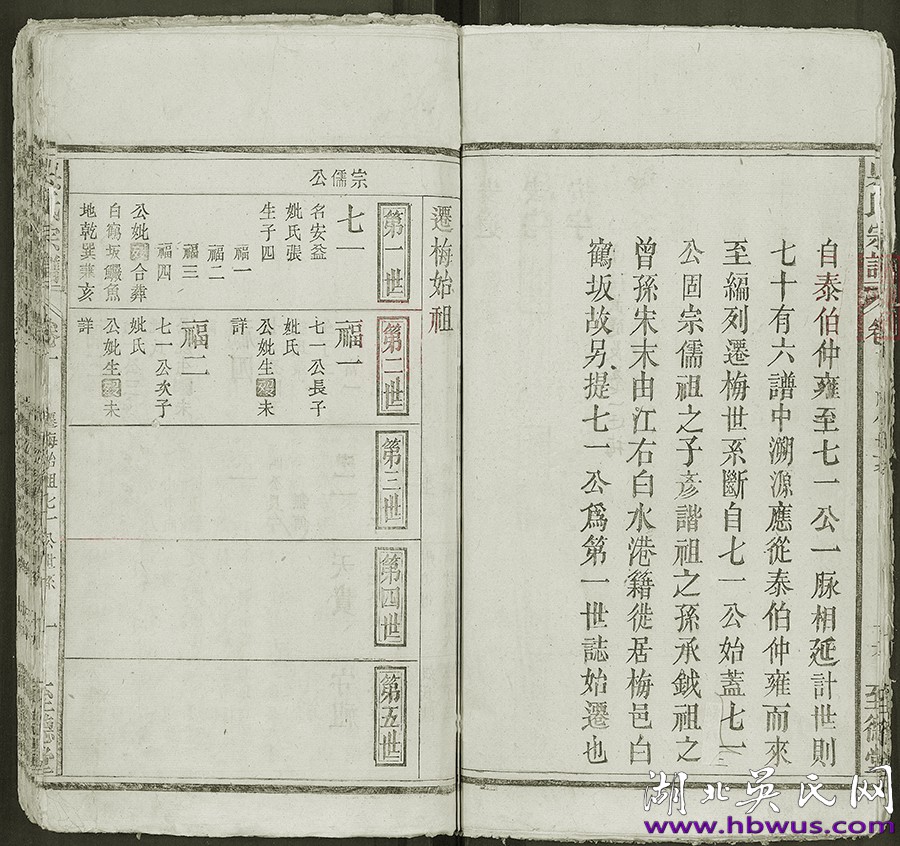 自泰伯仲雍至七一公一脉相延計世則
七十有六譜中溯源應從泰伯仲雍而來
至編列遷梅世系斷自七一公始蓋七一
公固宗儒祖之子彥諧祖之孫承鉞祖之
曾孫宋末由江右白水港籍徙居梅邑白
鶴坂故另提七一公爲第一世誌始遷也
至德堂
遷梅始祖
宗儒公
第一世
七一
名安益
妣氏張
生子四
福一
福二
福三
福四
公妣合葬
白鶴坂鱖魚
地乾巽亥
第二世
福一
七一公長子
妣氏
公妣生歿未
詳
福二
七一公次子
妣氏
公妣生歿未
詳
第三世
第四世
第五世
遷梅始祖七一公世系
一
至德堂
湖北吴氏网
www.hbwus.com